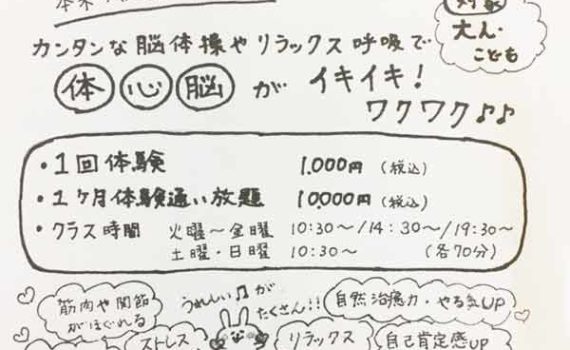 対象
大人・
こども
カンタンな脳体操やリラックス呼吸で
体 心 脳 が イキイキ！
ワクワク♪♪
・1回体験 1,000円（税込）
・1ヶ月体験通い放題 10,000円（税込）
・クラス時間 火曜〜金曜 10:30〜/14:30〜/19:30〜
土曜・日曜 10:30〜 （各70分）
筋肉や関節
がほぐれる
うれしい♫が
たくさん!!
自然治癒力・やる気UP
ストレス
リラックス
自己肯定感UP